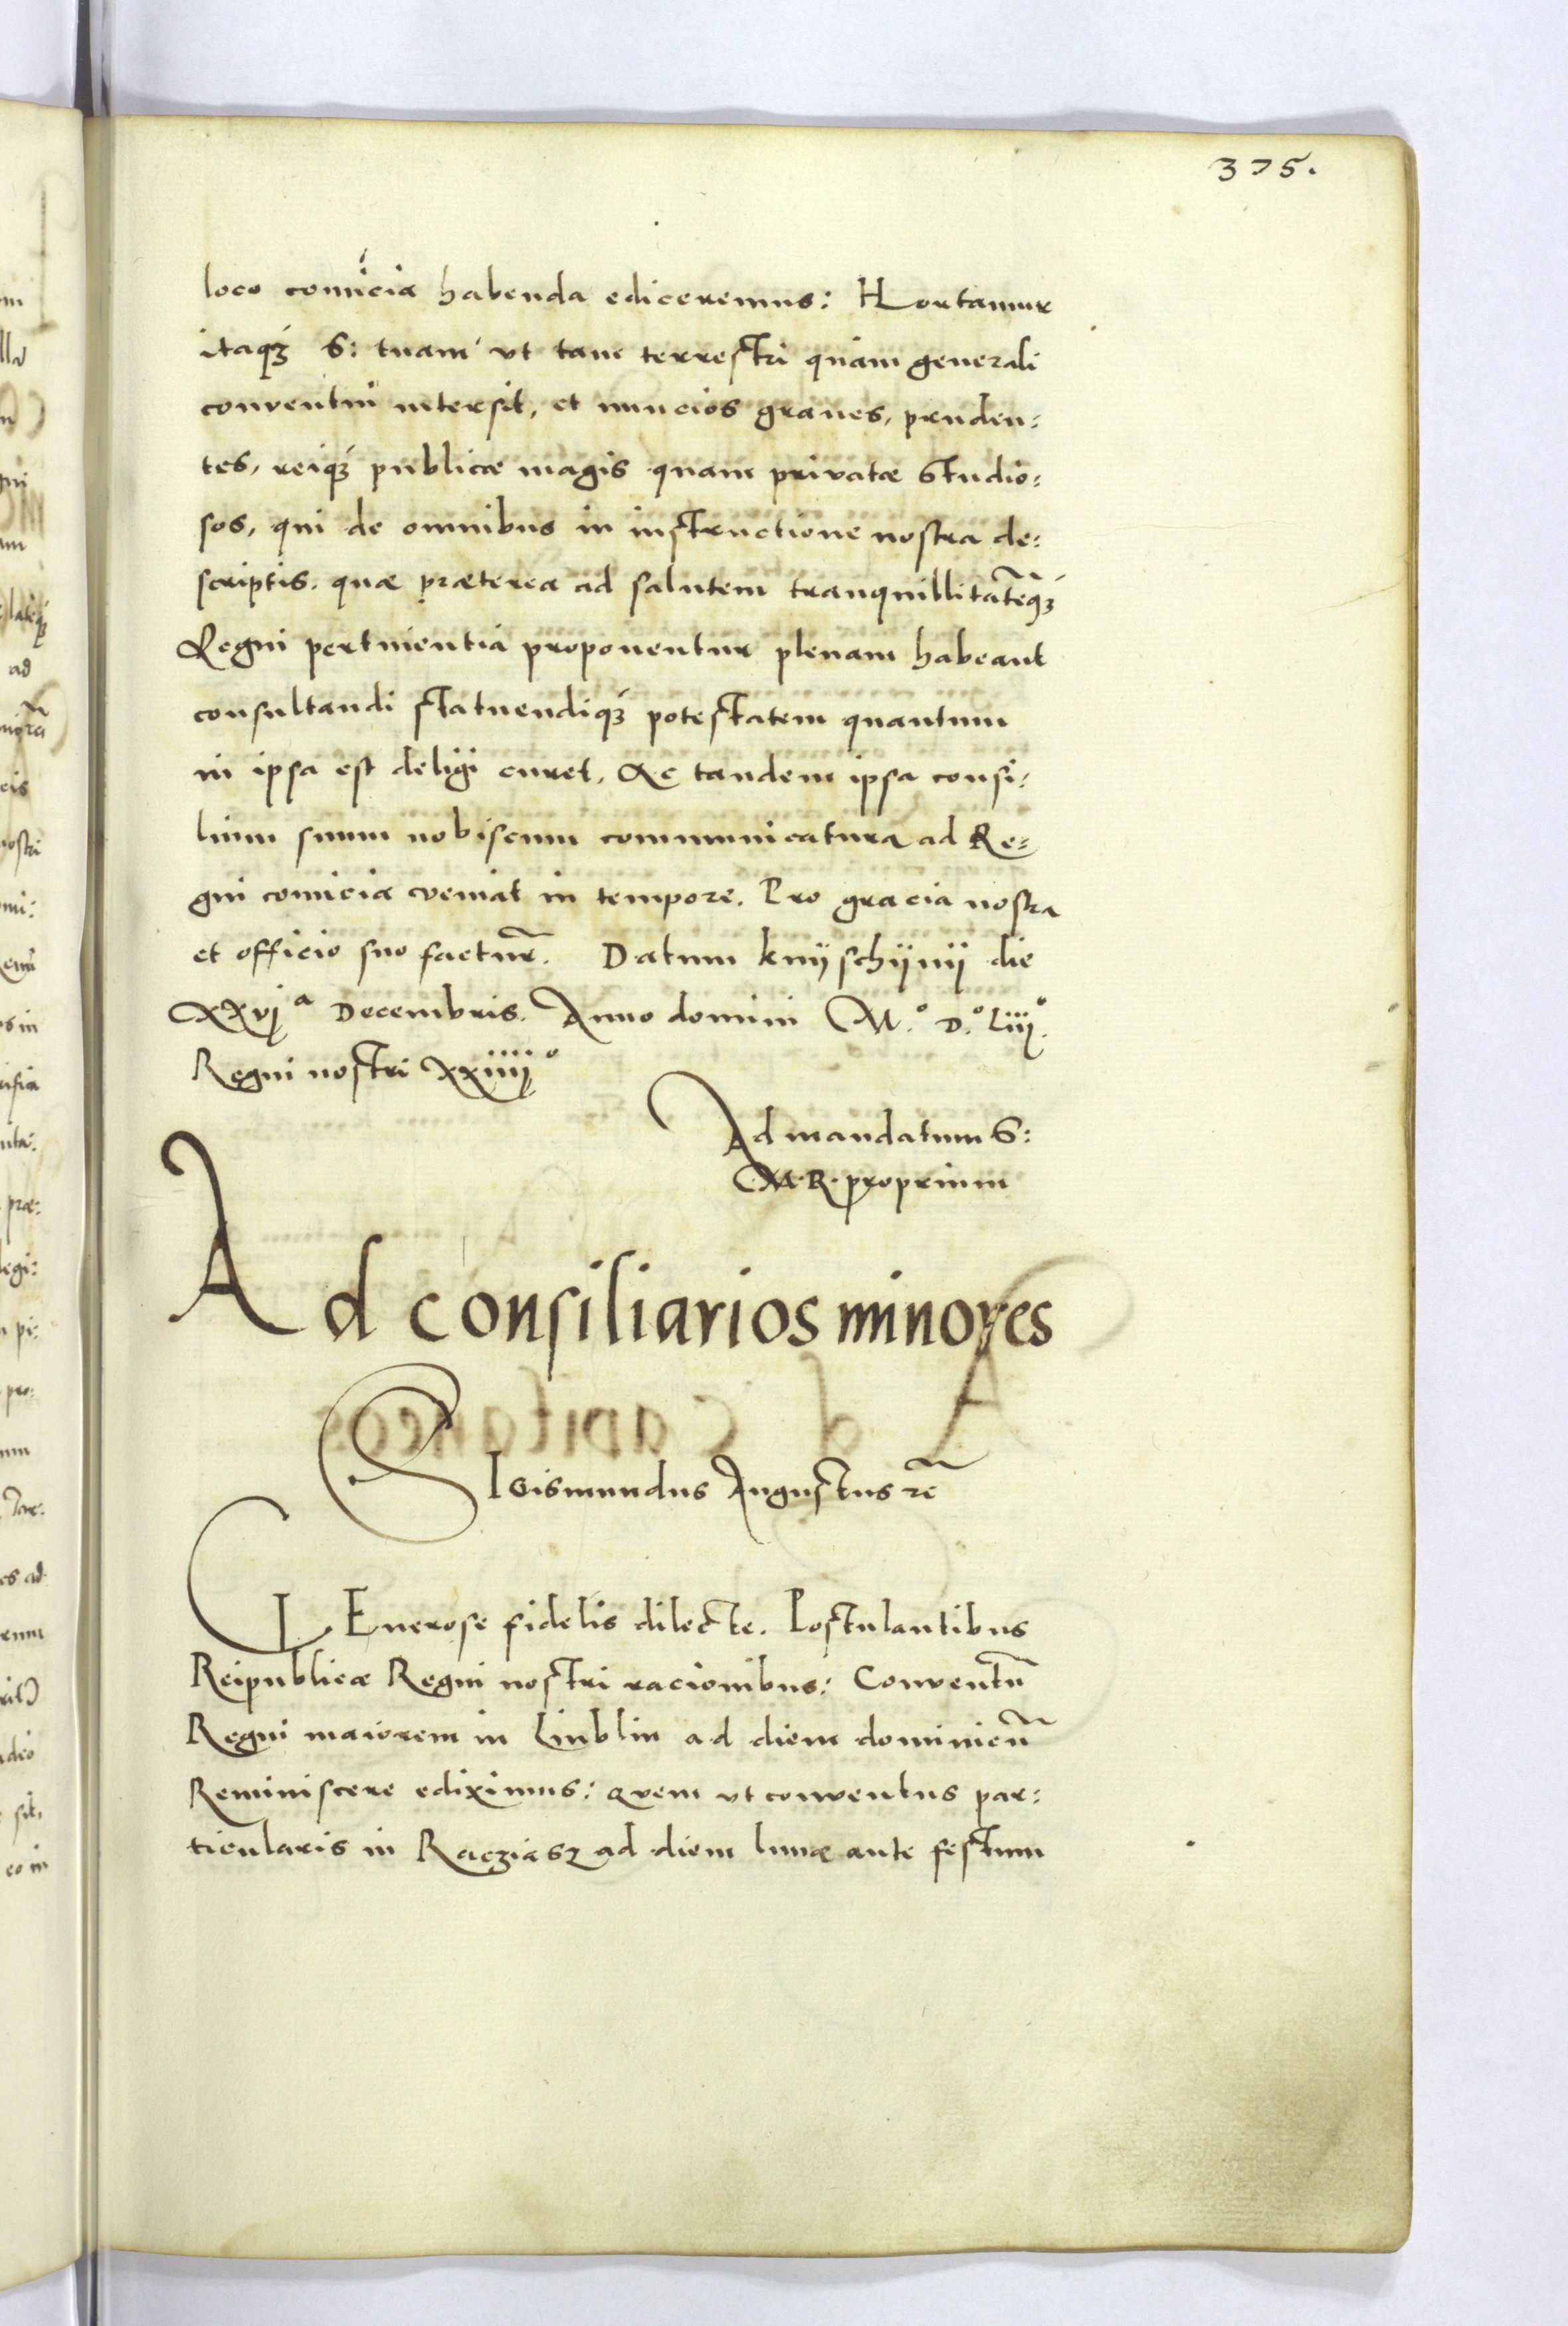 375.
loco comicia habenda ediceremus: Hortamur
itaqꝫ S: tuam ut tam terrestri quam generali
conventui intersit, et nuncios graues, pruden:
tes, reiqꝫ publicæ magis quam privatæ studio:
sos, qui de omnibus in instructione nostra de:
scriptis. quæ præterea ad salutem tranquillitateqꝫ
Regni pertinentia proponentur plenam habeant
consultandi statuendiqꝫ potestatem quantum
in ipsa est deligi curet, Ac tandem ipsa consi:
lium suum nobiscum communicatura ad Re:
gni comicia veniat in tempore. Pro gracia nostra
et officio suo factur̃. Datum knÿschÿnÿ die
xxvjª Decembris. Anno domini M.º D.º Liijº.
Regni nostri xxiiijº
Ad mandatum S:
M. R. proprium
Ad consiliarios minores
SIGismundus Augustus rẽ
GEnerose fidelis dilecte. Postulantibus
Reipublicæ Regni nostri racionibus: Conventũ
Regni maiorem in Liublin ad diem dominicũ
Reminiscere ediximus: Quem ut conventus par:
ticularis in Racziasz ad diem lunæ ante festum